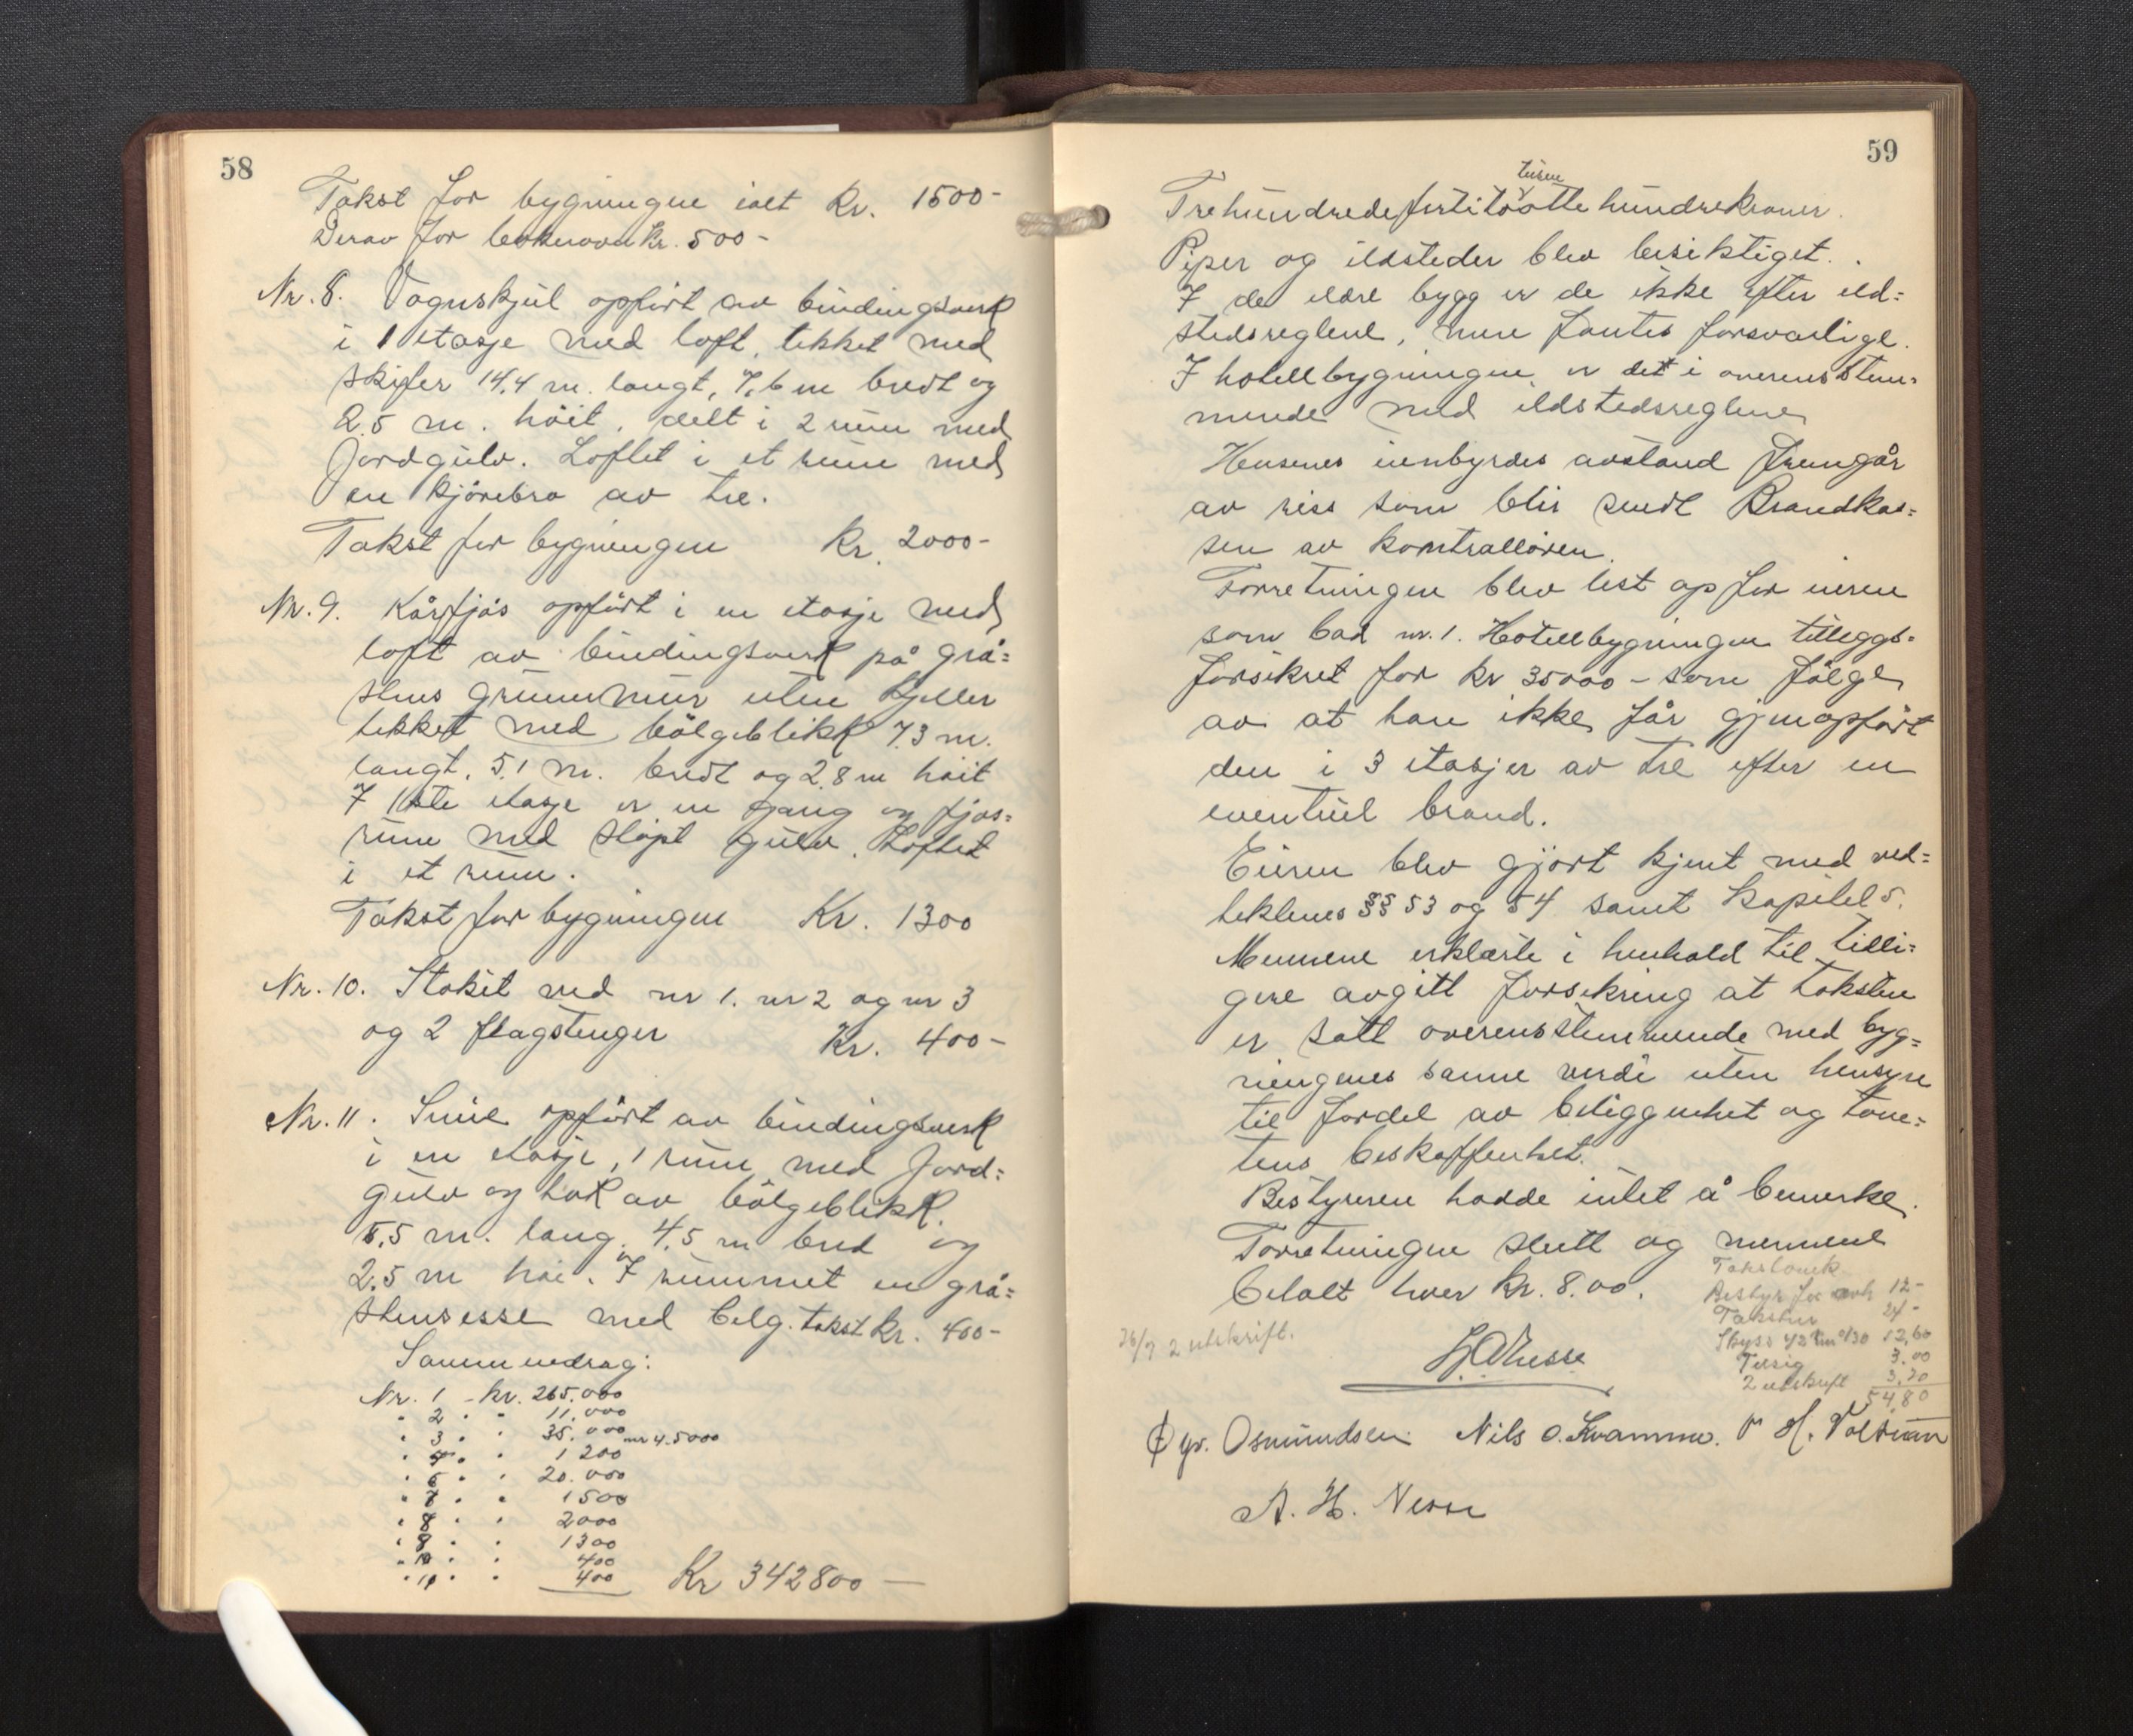 58
Takst for bygningen ialt kr. 1500-
Derav for bakerovn kr. 500-
Nr. 8. Vognskjul opført av bindingsverk
i 1 etasje med loft, tekket med
skifer 14,4 m. langt, 7,6 m bredt og
2,5 m. høit, delt i 2 rum med
Jordgulv. Loftet i et rum med
en kjørebro av tre.
Takst for bygningen kr. 2000-
Nr. 9. Kårfjøs opført i en etasje med
loft av bindingsverk på grå=
stens grunnmur uten kjeller
tekket med bølgeblikk 7,3 m.
langt, 5,1 m. bredt og 2,8 m høit
I 1ste etasje er en gang og fjøs=
rum med støpt gulv. Loftet
i et rum.
Takst for bygningen Kr. 1300
Nr. 10. Stakit ved nr 1. nr 2 og nr 3
og 2 flagstenger kr. 400-
Nr. 11. Smie opført av bindingsverk
i en etasje, 1 rum med Jord=
gulv og tak av bølgeblikk.
5,5 m. lang, 4,5 m bred og
2,5 m høi. I rummet er en grå=
stensesse med belg. takst kr. 400-
Sammendrag:
Nr. 1 - kr. 265.000
" 2 " " 11.000
" 3 " " 35.000 nr 4. 5000
" " " 1 200
" 6 " " 20.000
" 7 " " 1500
" 8 " " 2000
" 9 " " 1300
" 10 " " 400
" 11 " " 400 Kr 342800 —
59
tusen
Trehundredeførtitoåttehundrekroner.
Piper og ildsteder blev besiktiget.
I de eldre bygg er de ikke efter ild=
stedsreglene, men fantes forsvarlige.
I hotellbygningen er det i overensstem=
mende med ildstedsreglene
Husenes innbyrdes avstand fremgår
av riss som blir sendt Brandkas=
sen av kontrolløren.
Forretningen blev lest op for eieren
som bad nr. 1. Hotellbygningen tilleggs=
forsikret for kr 35000 - som følge
av at han ikke får gjenopført
den i 3 etasjer av tre efter en
eventuel brand.
Eieren blev gjort kjent med ved=
tektenes §§ 53 og 54 samt kapitel 5.
Mennene erklærte i henhold til tidli=
gere avgitt forsikring at taksten
er satt overensstemmende med byg=
ningenes sanne verdi uten hensyn
til fordel av beliggenhet og tom=
tens beskaffenhet.
Bestyreren hadde intet å bemerke.
Forretningen slutt og mennene
betalt hver kr. 8.00.
Bestyr for 12-
Takstm 24-
Skyss 42 km á/30 12,60
Tilsig 3.00
2 utskrift 3,20
54,80
26/7 2 utskrift.
Øyv. Osmundsen Nils O. Kvamme.
A. H. Nesse